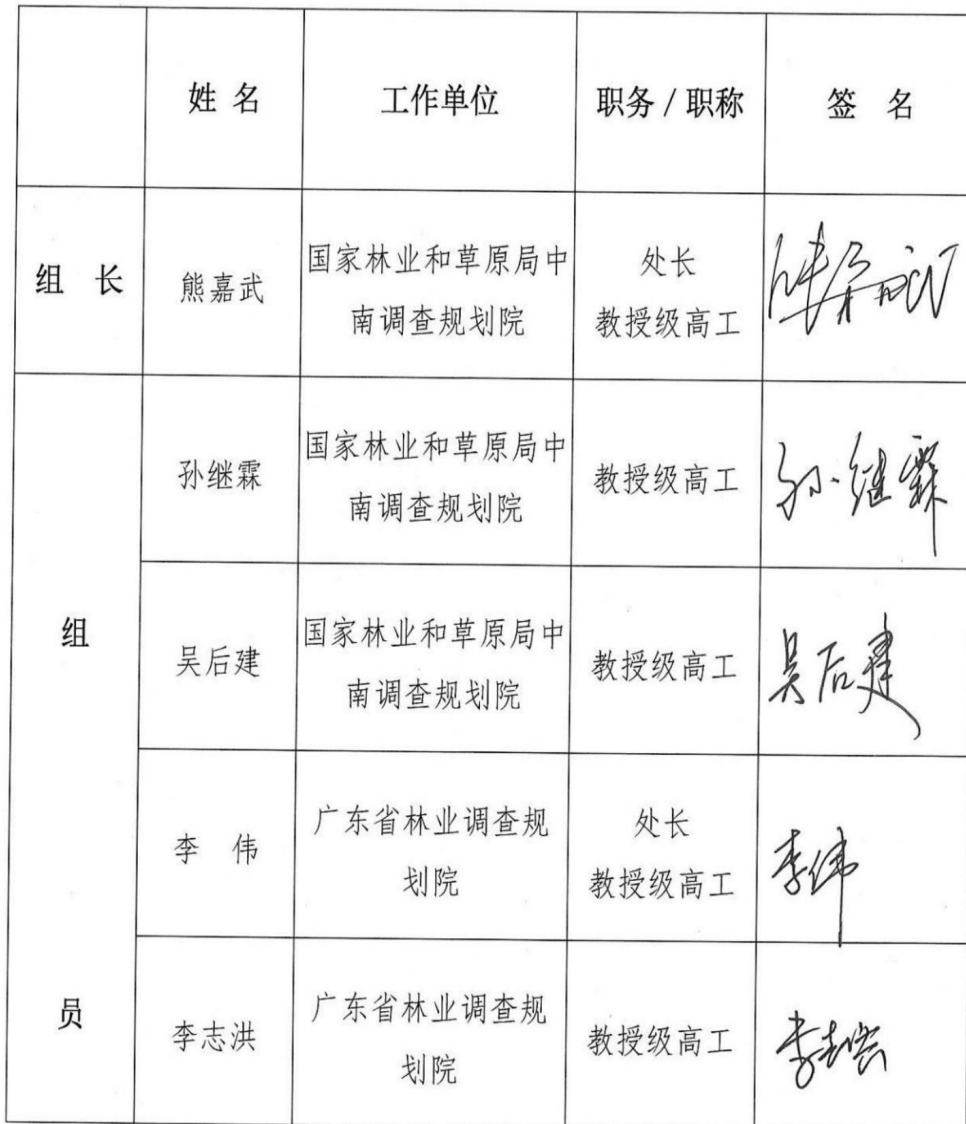 姓 名 工作单位 职务 / 职称 签 名
组 长 熊嘉武 国家林业和草原局中南调查规划院 处长 教授级高工
孙继霖 国家林业和草原局中南调查规划院 教授级高工 孙继霖
组 吴后建 国家林业和草原局中南调查规划院 教授级高工 吴后建
李 伟 广东省林业调查规划院 处长 教授级高工 李伟
员 李志洪 广东省林业调查规划院 教授级高工